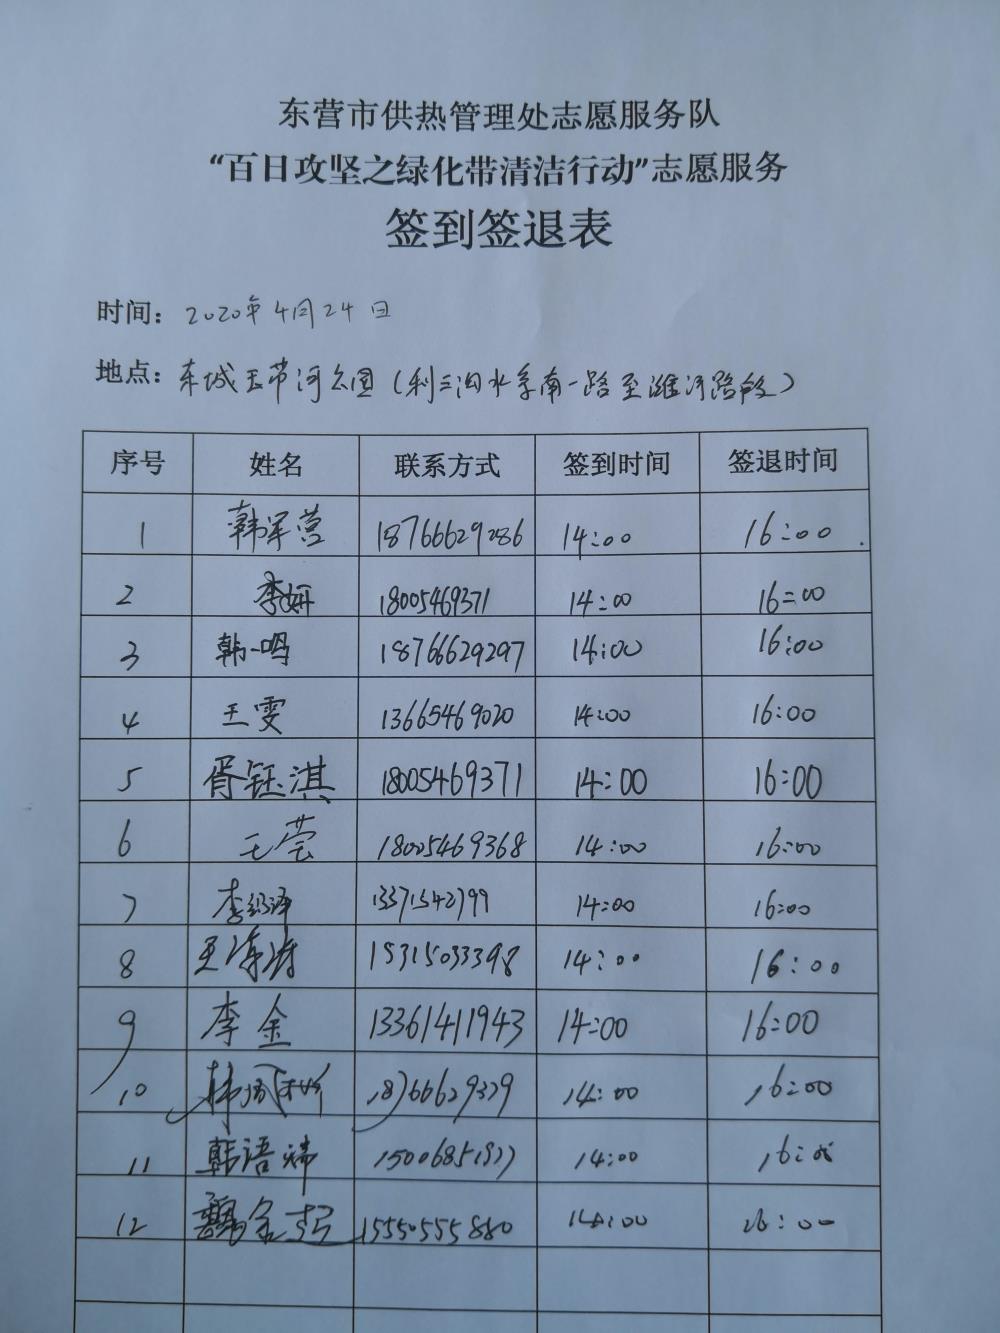 东营市供热管理处志愿服务队
“百日攻坚之绿化带清洁行动”志愿服务
签到签退表
时间：2020年4月24日
地点：东城玉带河公园（利三沟水系南一路至潍河路段）
序号 姓名 联系方式 签到时间 签退时间
1 韩军营 18766629286 14:00 16:00
2 李妍 18005469371 14:00 16:00
3 韩一鸣 18766629297 14:00 16:00
4 王雯 13665469020 14:00 16:00
5 胥钰淇 18005469371 14:00 16:00
6 王莹 18005469368 14:00 16:00
7 李 13371542799 14:00 16:00
8 王涛 15315033398 14:00 16:00
9 李金 13361411943 14:00 16:00
10 韩 18766629339 14:00 16:00
11 韩语 15006851977 14:00 16:00
12 15550555880 14:00 16:00